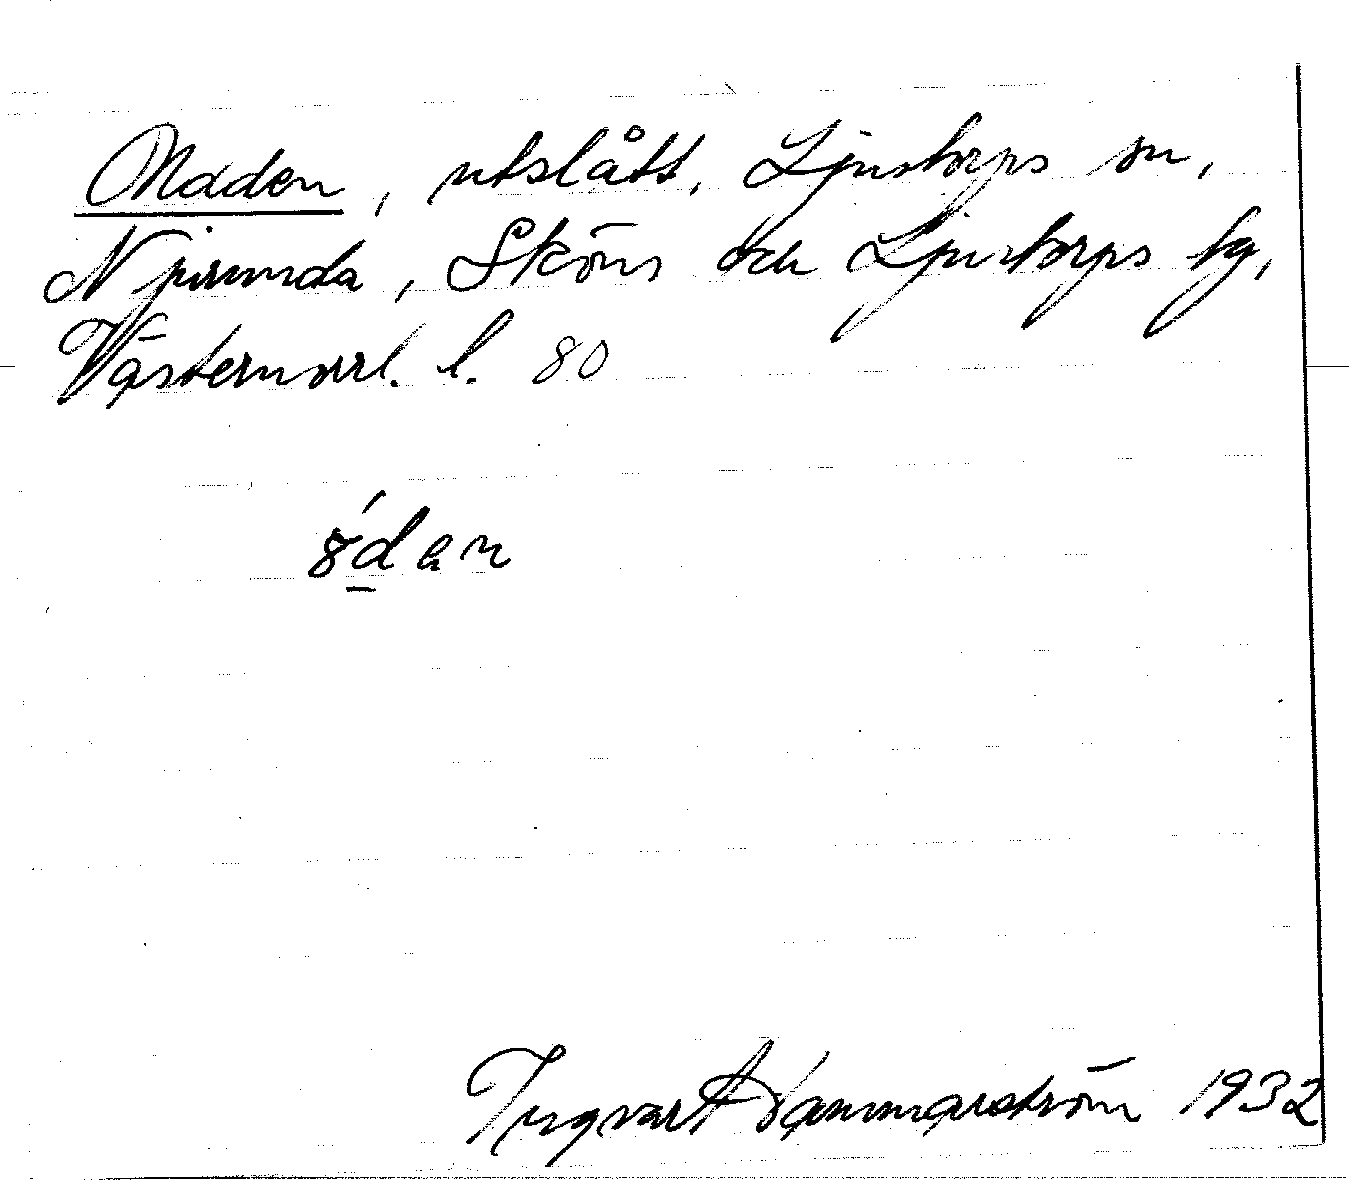 Ådden, utslått, Ljustorps sn,
Njurunda, Sköns och Ljustorps tg,
Västernorrl. l. 80
ɤ́dan
Ingvar Hammarström 1932